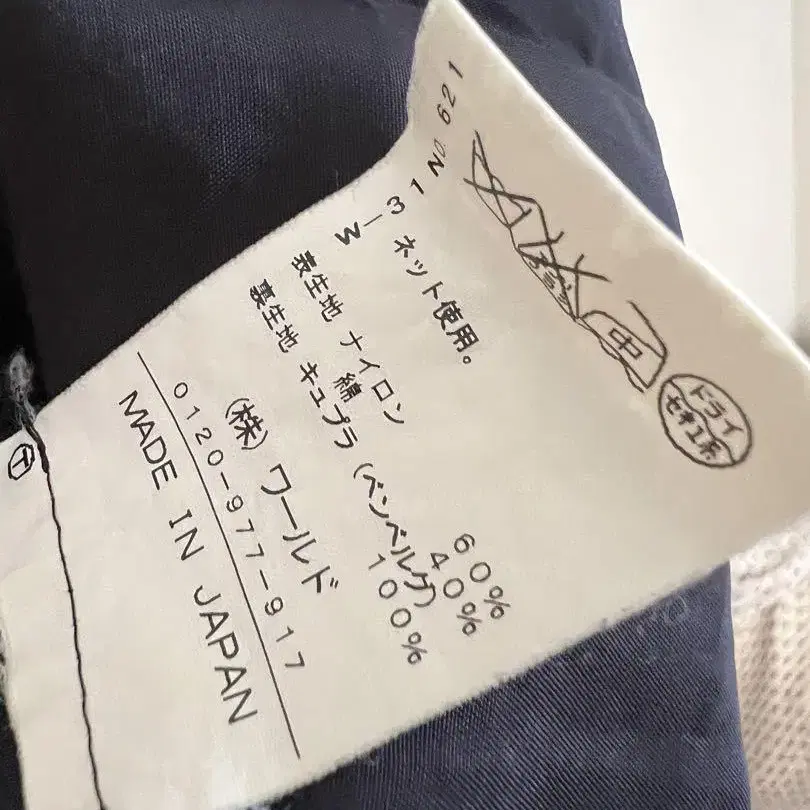 W-31 No. 621
中
ドライ
セキユ系
ネット使用。
表生地 ナイロン 60%
綿 40%
裏生地 キュプラ (ベンベルグ) 100%
(株) ワールド
0120-977-917
MADE IN JAPAN
T